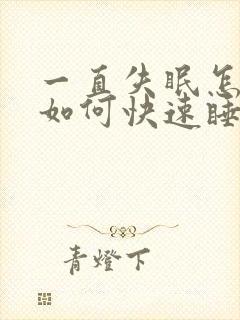 一直失眠怎
如何快速睡
青燈下